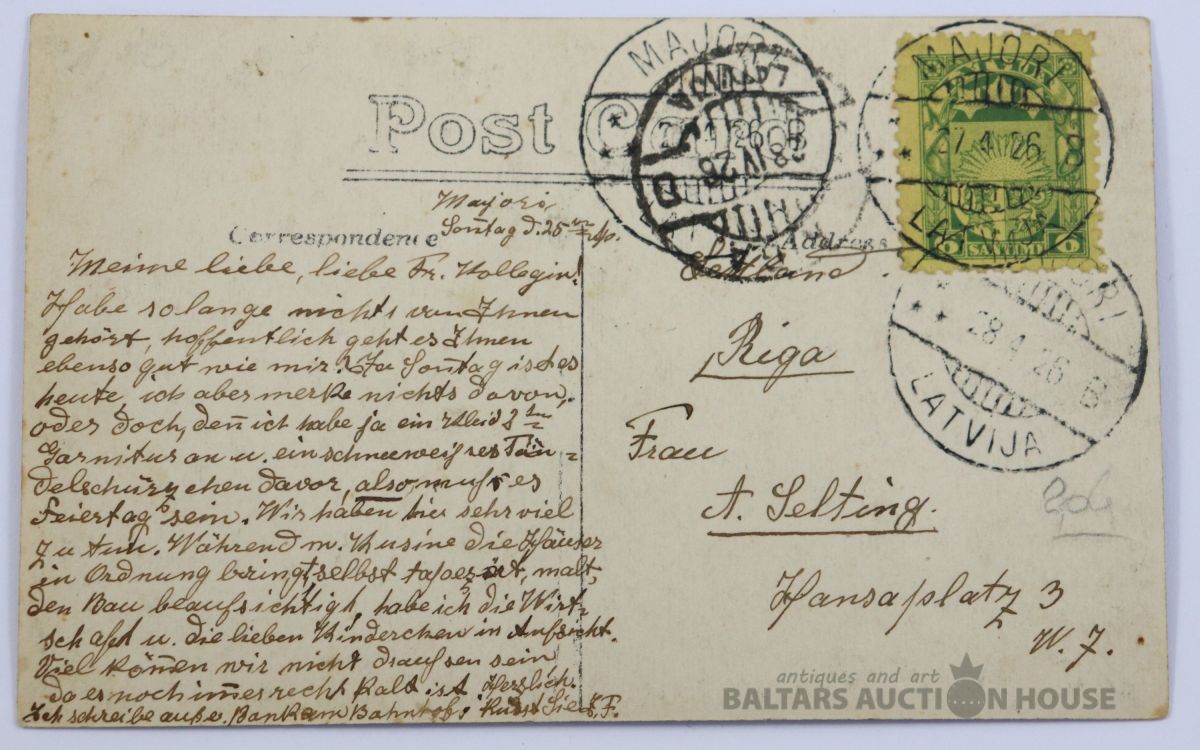 Post Card
Majori,
Sontag d. 25
Correspondence
Meine liebe, liebe Fr. Kollegin!
Habe so lange nichts von Ihnen
gehört, hoffentlich geht es Ihnen
ebenso gut wie mir. Ja Sontag ist es
heute, ich aber merke nichts davon,
oder doch, den ich habe ja ein Kleid
Garnitur an u. ein schneeweisses Tän=
delschürzchen davor, also muss es
Feiertag sein. Wir haben hier sehr viel
zu tun. Während m. Kusine die Häuser
in Ordnung bringt, selbst tapeziert, malt,
den Bau beaufsichtigt, habe ich die Wirt-
schaft u. die lieben Kinderchen in Aufsicht.
Viel können wir nicht draussen sein
da es noch immer recht kalt ist. Herzlich
Ich schreibe auf e. Bank am Bahnhof. küsst Sie F.
Address
Riga
Frau
A. Selting.
Hansaplatz 3
W. 7.
MAJORI
27 4 26 B
LATVIJA
6 SANTIMI 6
MAJORI
28 4 26 B
LATVIJA
MAJORI
26
LATVIJA
RIGA
IV 26
D
antiques and art
BALTARS AUCTION HOUSE